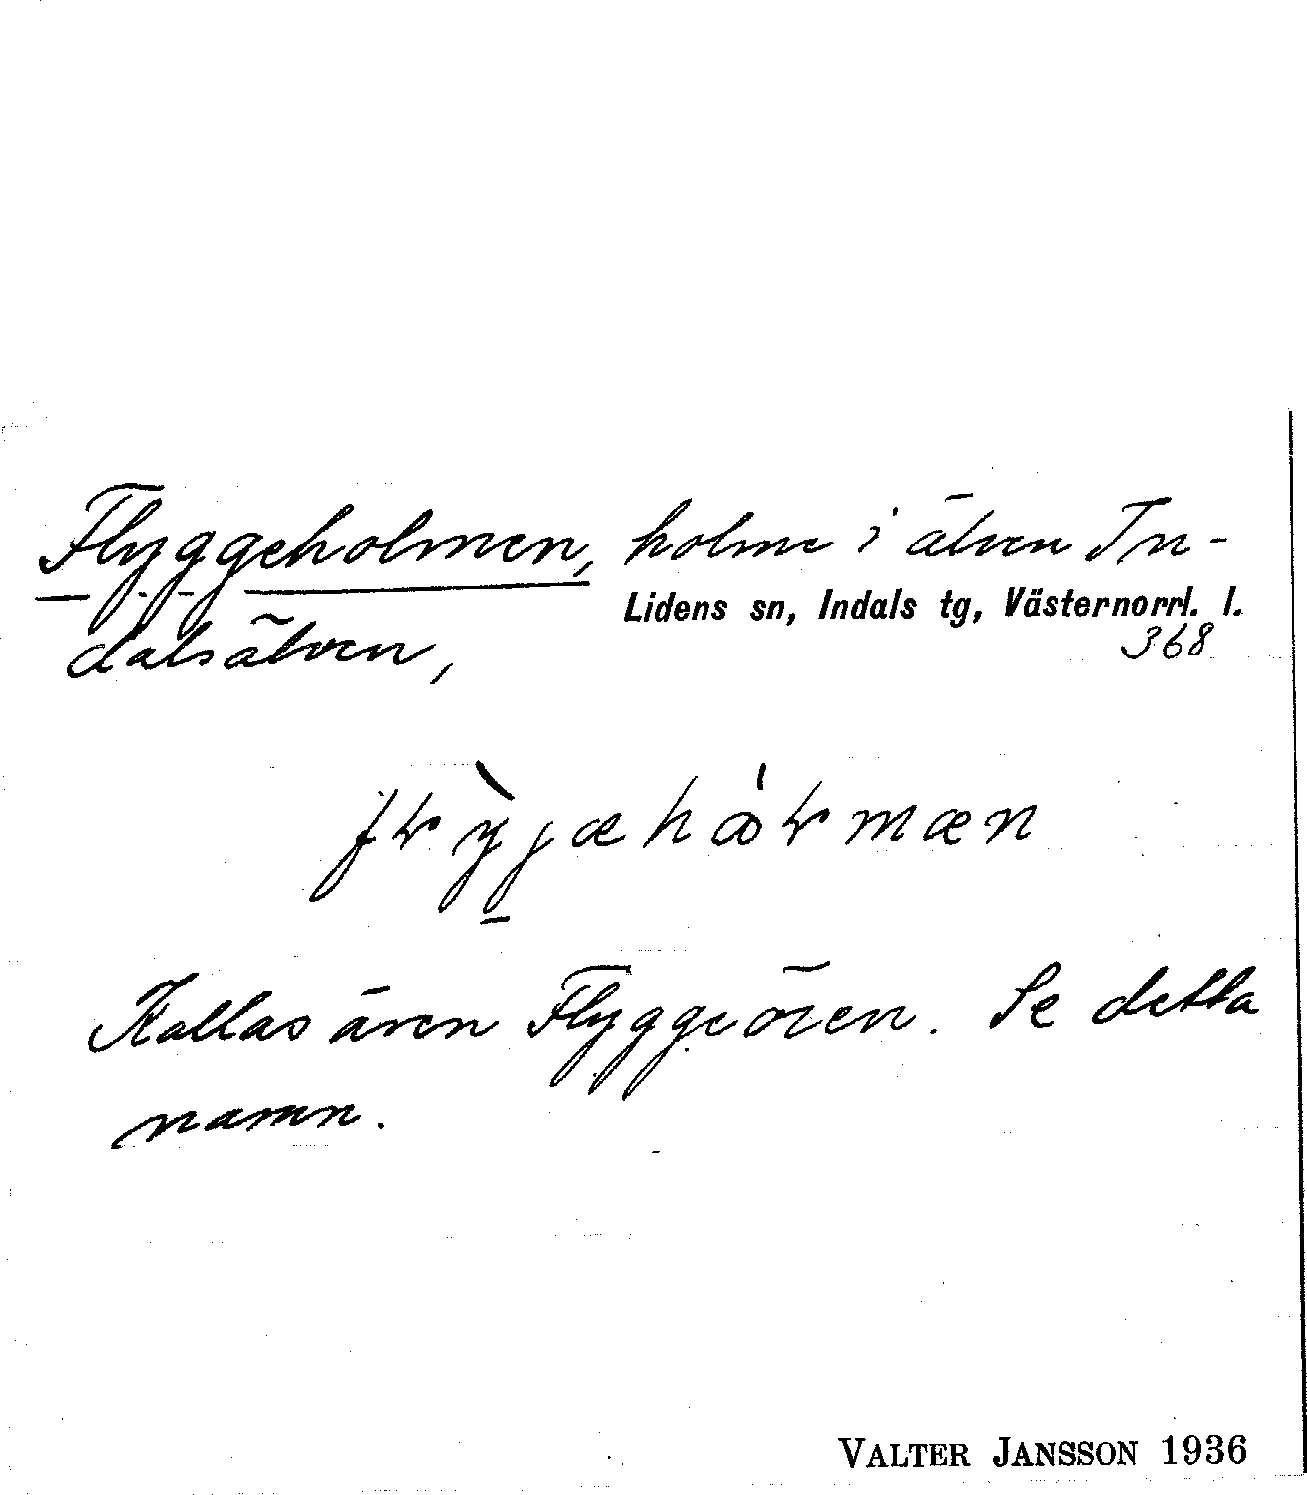 Flyggeholmen, holme i älven In-
Lidens sn, Indals tg, Västernorrl. l.
dalsälven,
368
Kallas även Flyggeören. Se detta
namn.
VALTER JANSSON 1936